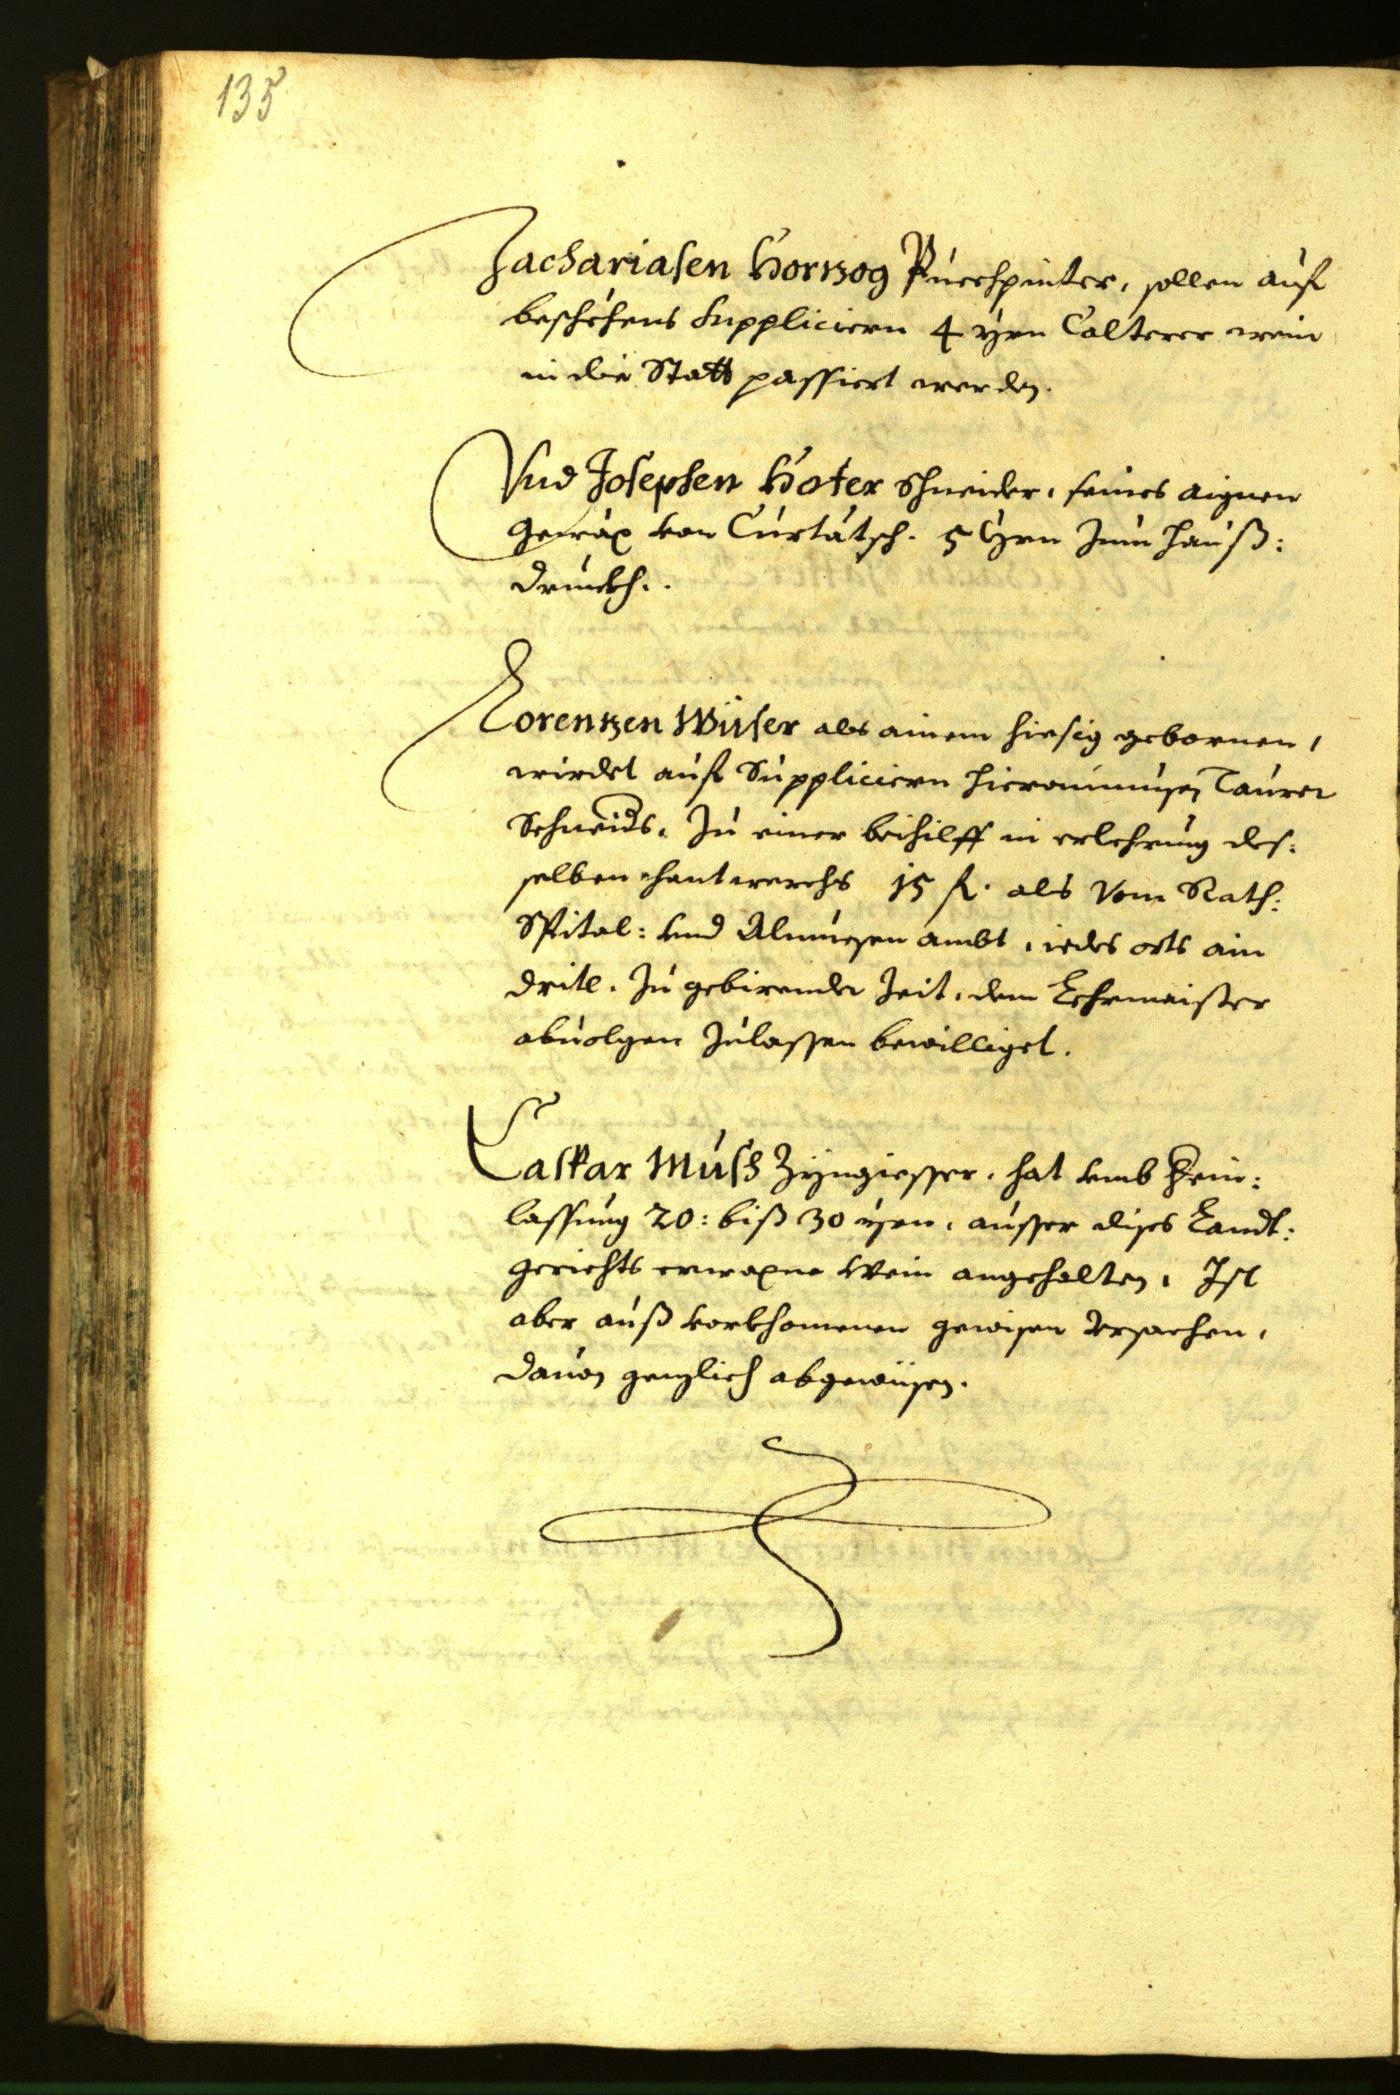 135
Zachariasen Hortzog Puechpinter, sollen auf
beschehens Suppliciern 4 yrn Calterer wein
in die Statt passiert werden.
Vnd Josephen Hofer Schneider, seines aignen
gewäx von Curtätsch. 5 Yrn zum hauß:
drunckh.
Lorentzen Wiser als ainem hiesig gebornen,
wirdet auf Suppliciern Hieronimusen Taurer
Schneiders. Zu einer beihilff in erlehrnung des:
selben hantwerchs 15 fl. als vom Rath:
Spital: vnd Almuesen ambt, iedes orts ain
dritl. Zu gebirender Zeit, dem Lehrmaister
abuolgen zulassen bewilliget.
Caspar Musch Zyngiesser, hat vmb Herein:
lassung 20: biß 30 yrn, ausser dises Landt:
gerichts erwaxne Wein angehalten, Ist
aber auß vorkhomenen gewisen Vrsachen,
dauon genzlich abgewisen.